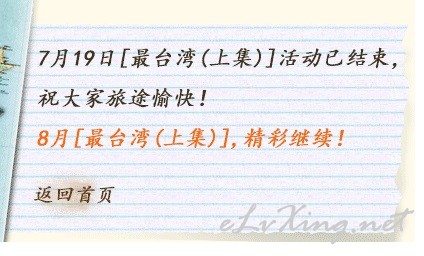 7月19日[最台湾(上集)]活动已结束,
祝大家旅途愉快!
8月[最台湾(上集)],精彩继续!
返回首页
eLvXing.net